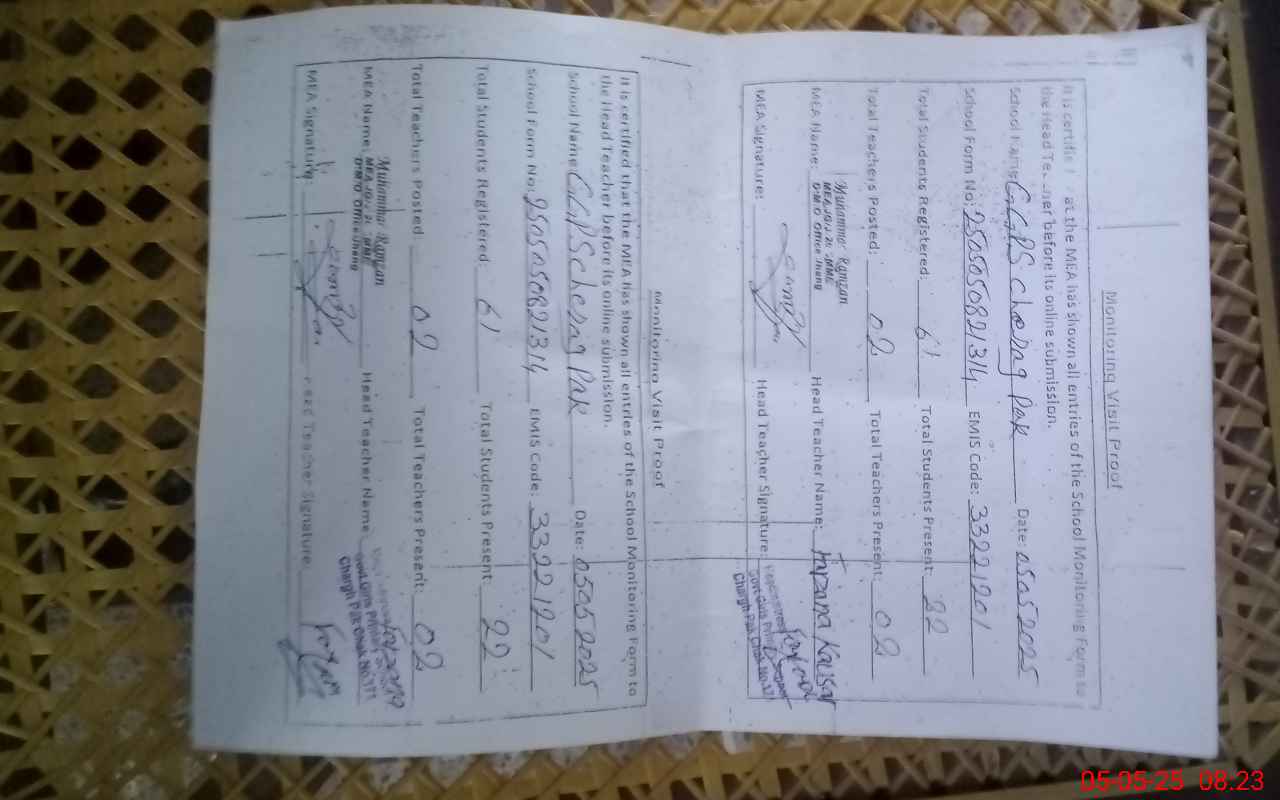 Monitoring Visit Proof
It is certified that the MEA has shown all entries of the School Monitoring Form to
the Head Teacher before its online submission.
School Name: GGPS Cheragh Pak Date: 05052025
School Form No: 2505050821314 EMIS Code: 33221201
Total Students Registered: 61 Total Students Present: 22
Total Teachers Posted: 02 Total Teachers Present: 02
Muhammar Ramzan
D.M.O Office Jhang
MEA Name: Head Teacher Name: Kausar
MEA Signature: Head Teacher Signature:
Govt. Girls Primary
Chargh Pak Chak No.
Monitoring Visit Proof
It is certified that the MEA has shown all entries of the School Monitoring Form to
the Head Teacher before its online submission.
School Name GGPS Cheragh Pak Date: 05052025
School Form No: 2505050821314 EMIS Code: 33221201
Total Students Registered: 61 Total Students Present: 22
Total Teachers Posted 02 Total Teachers Present: 02
Muhammar Ramzan
D.M.O Office Jhang
MEA Name: Head Teacher Name:
Govt. Girls Primary
Chargh Pak Chak No.
MEA Signature: Head Teacher Signature:
05-05-25 08.23